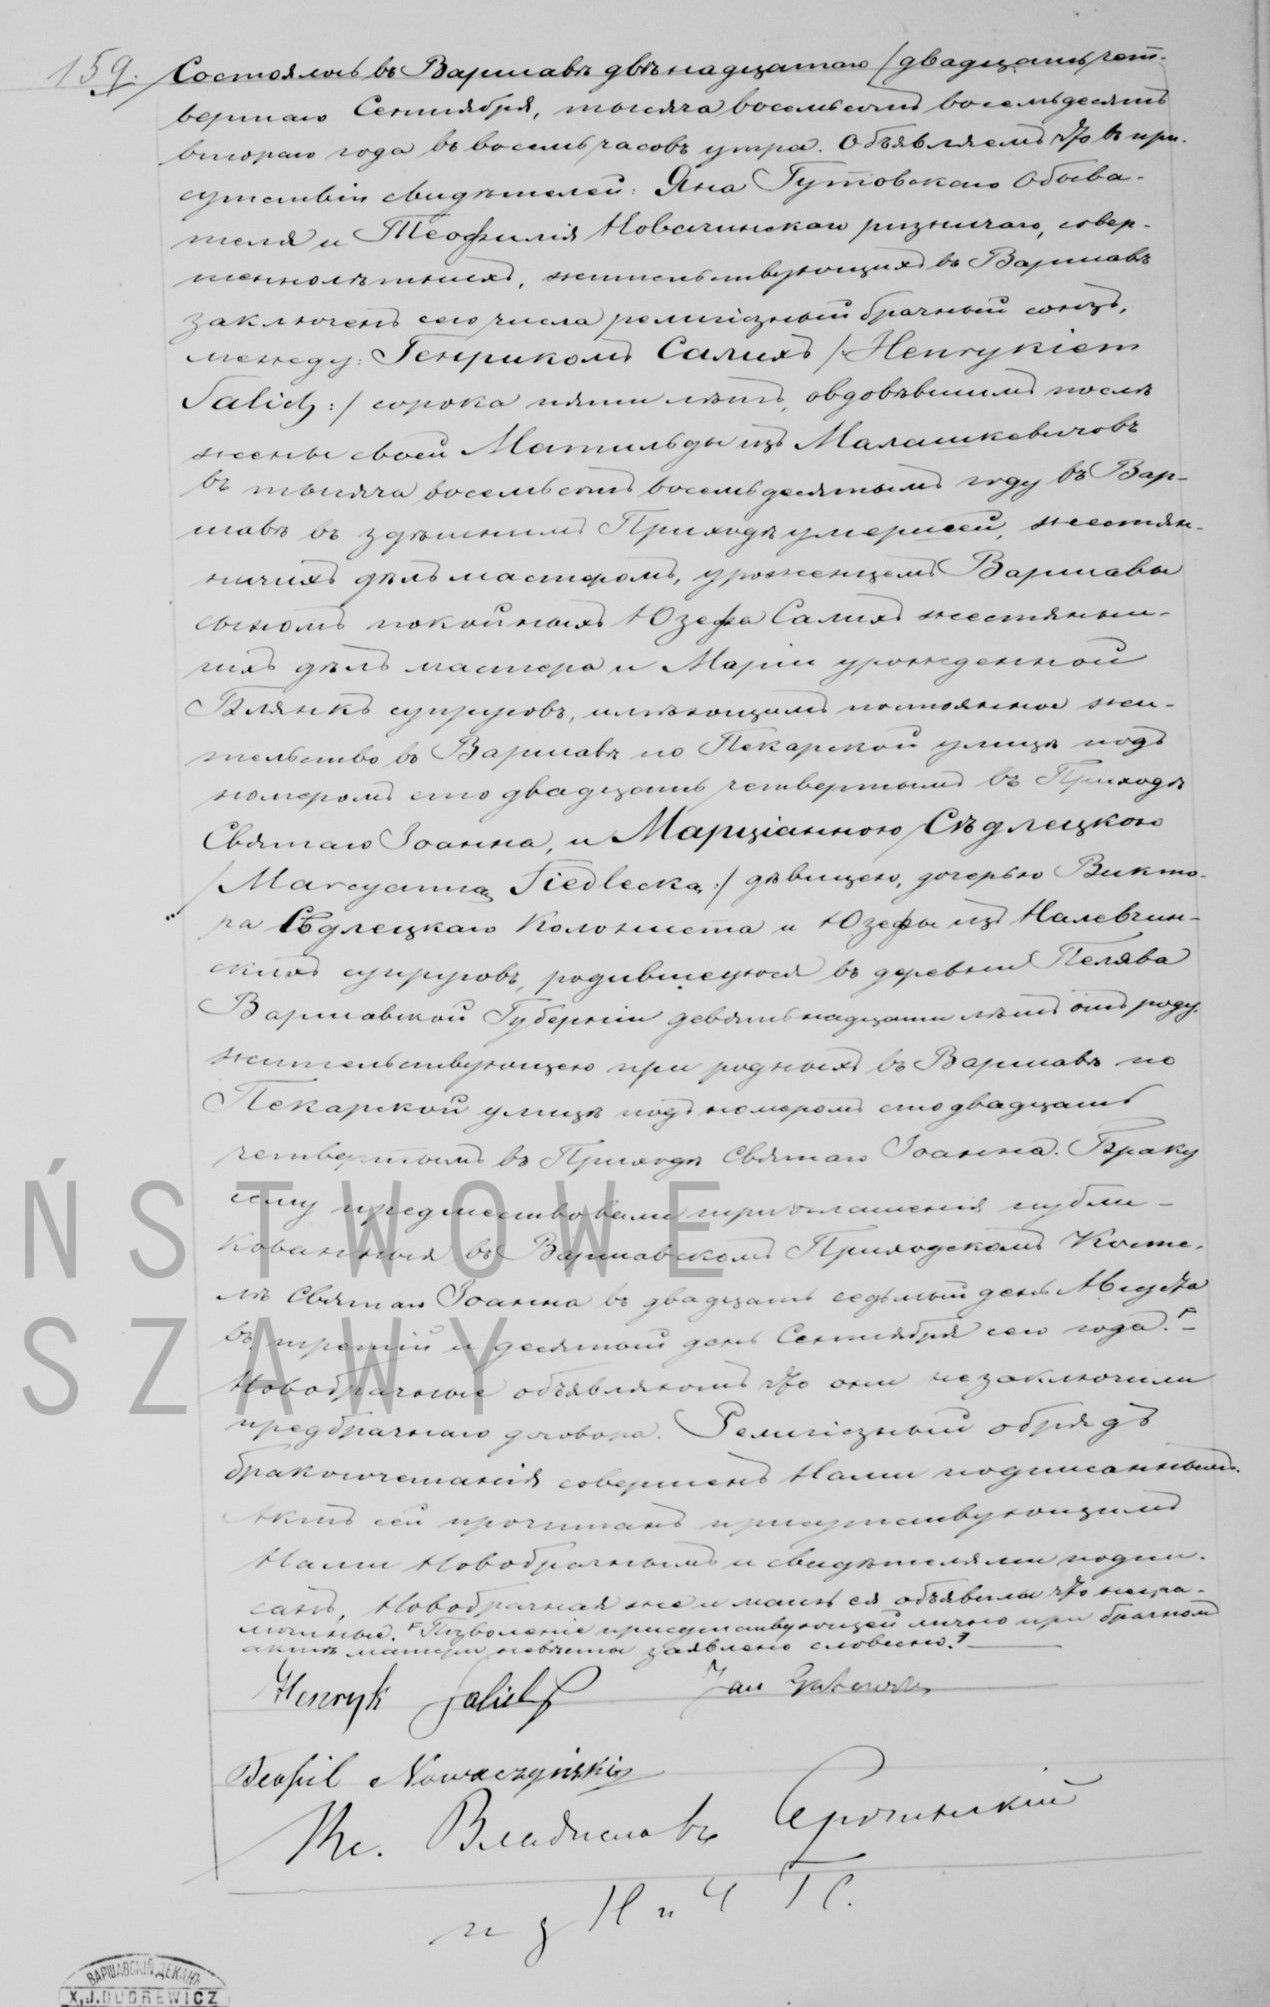 159. Состоялось въ Варшавѣ двѣнадцатаго /двадцать чет-
вертаго Сентября, тысяча восемьсотъ восемьдесятъ
втораго года въ восемь часовъ утра. Объявляемъ что въ при-
сутствіи свидѣтелей: Яна Гутовскаго Обыва-
теля и Теофилія Новачинскаго ризничаго, совер-
шеннолѣтныхъ, жительствующихъ въ Варшавѣ
заключенъ сего числа религіозный брачный союзъ,
между: Генрикомъ Салихъ /:Henrykiem
Salich:/ сорока пяти лѣтъ, овдовѣвшимъ послѣ
жены своей Матильды изъ Малашкевичовъ
въ тысяча восемьсотъ восемьдесятымъ году въ Вар-
шавѣ въ здѣшнимъ Приходѣ умершей, жестян-
ничихъ дѣлъ мастеромъ, уроженцемъ Варшавы
сыномъ покойныхъ Юзефа Салихъ жестянни-
чихъ дѣлъ мастера и Маріи урожденной
Блянкъ супруговъ, имѣющимъ постоянное жи-
тельство въ Варшавѣ по Пекарской улицѣ подъ
номеромъ сто двадцать четвертымъ въ Приходѣ
Святаго Іоанна, и Марціанною Сѣдлецкою
/Marcyanną Siedlecką:/ дѣвицею, дочерью Викто-
ра Сѣдлецкаго Колониста и Юзефы изъ Налевчин-
скихъ супруговъ, родившеюся въ деревни Пелява
Варшавской Губерніи девятьнадцати лѣтъ отъ роду,
жительствующею при родныхъ въ Варшавѣ по
Пекарской улицѣ подъ номеромъ сто двадцать
четвертымъ въ Приходѣ Святаго Іоанна. Браку
сему предшествовали три оглашенія публи-
кованныя въ Варшавскомъ Приходскомъ Косте-
лѣ Святаго Іоанна въ двадцать седьмый день Августа
въ третій и десятый день Сентября сего года.
Новобрачные объявляютъ что они не заключили
предбрачнаго договора. Религіозный обрядъ
бракосочетанія совершенъ Нами подписаннымъ.
Актъ сей прочитанъ присутствующимъ
Нами Новобрачнымъ и свидѣтелями подпи-
санъ, Новобрачная же и мать ея объявили что негра-
мотные. Позволеніе присутствующей лично при брачномъ
актѣ матери невѣсты заявлено словесно.
Henryk Salich Jan Gutowski
Teofil Nowaczyński
Кс. Владиславъ
п з Н и Ч Г С.
ŃSTWOWE
SZAWY
ВАРШАВСКІЙ ДЕКАНЪ
X.J. DUDREWICZ